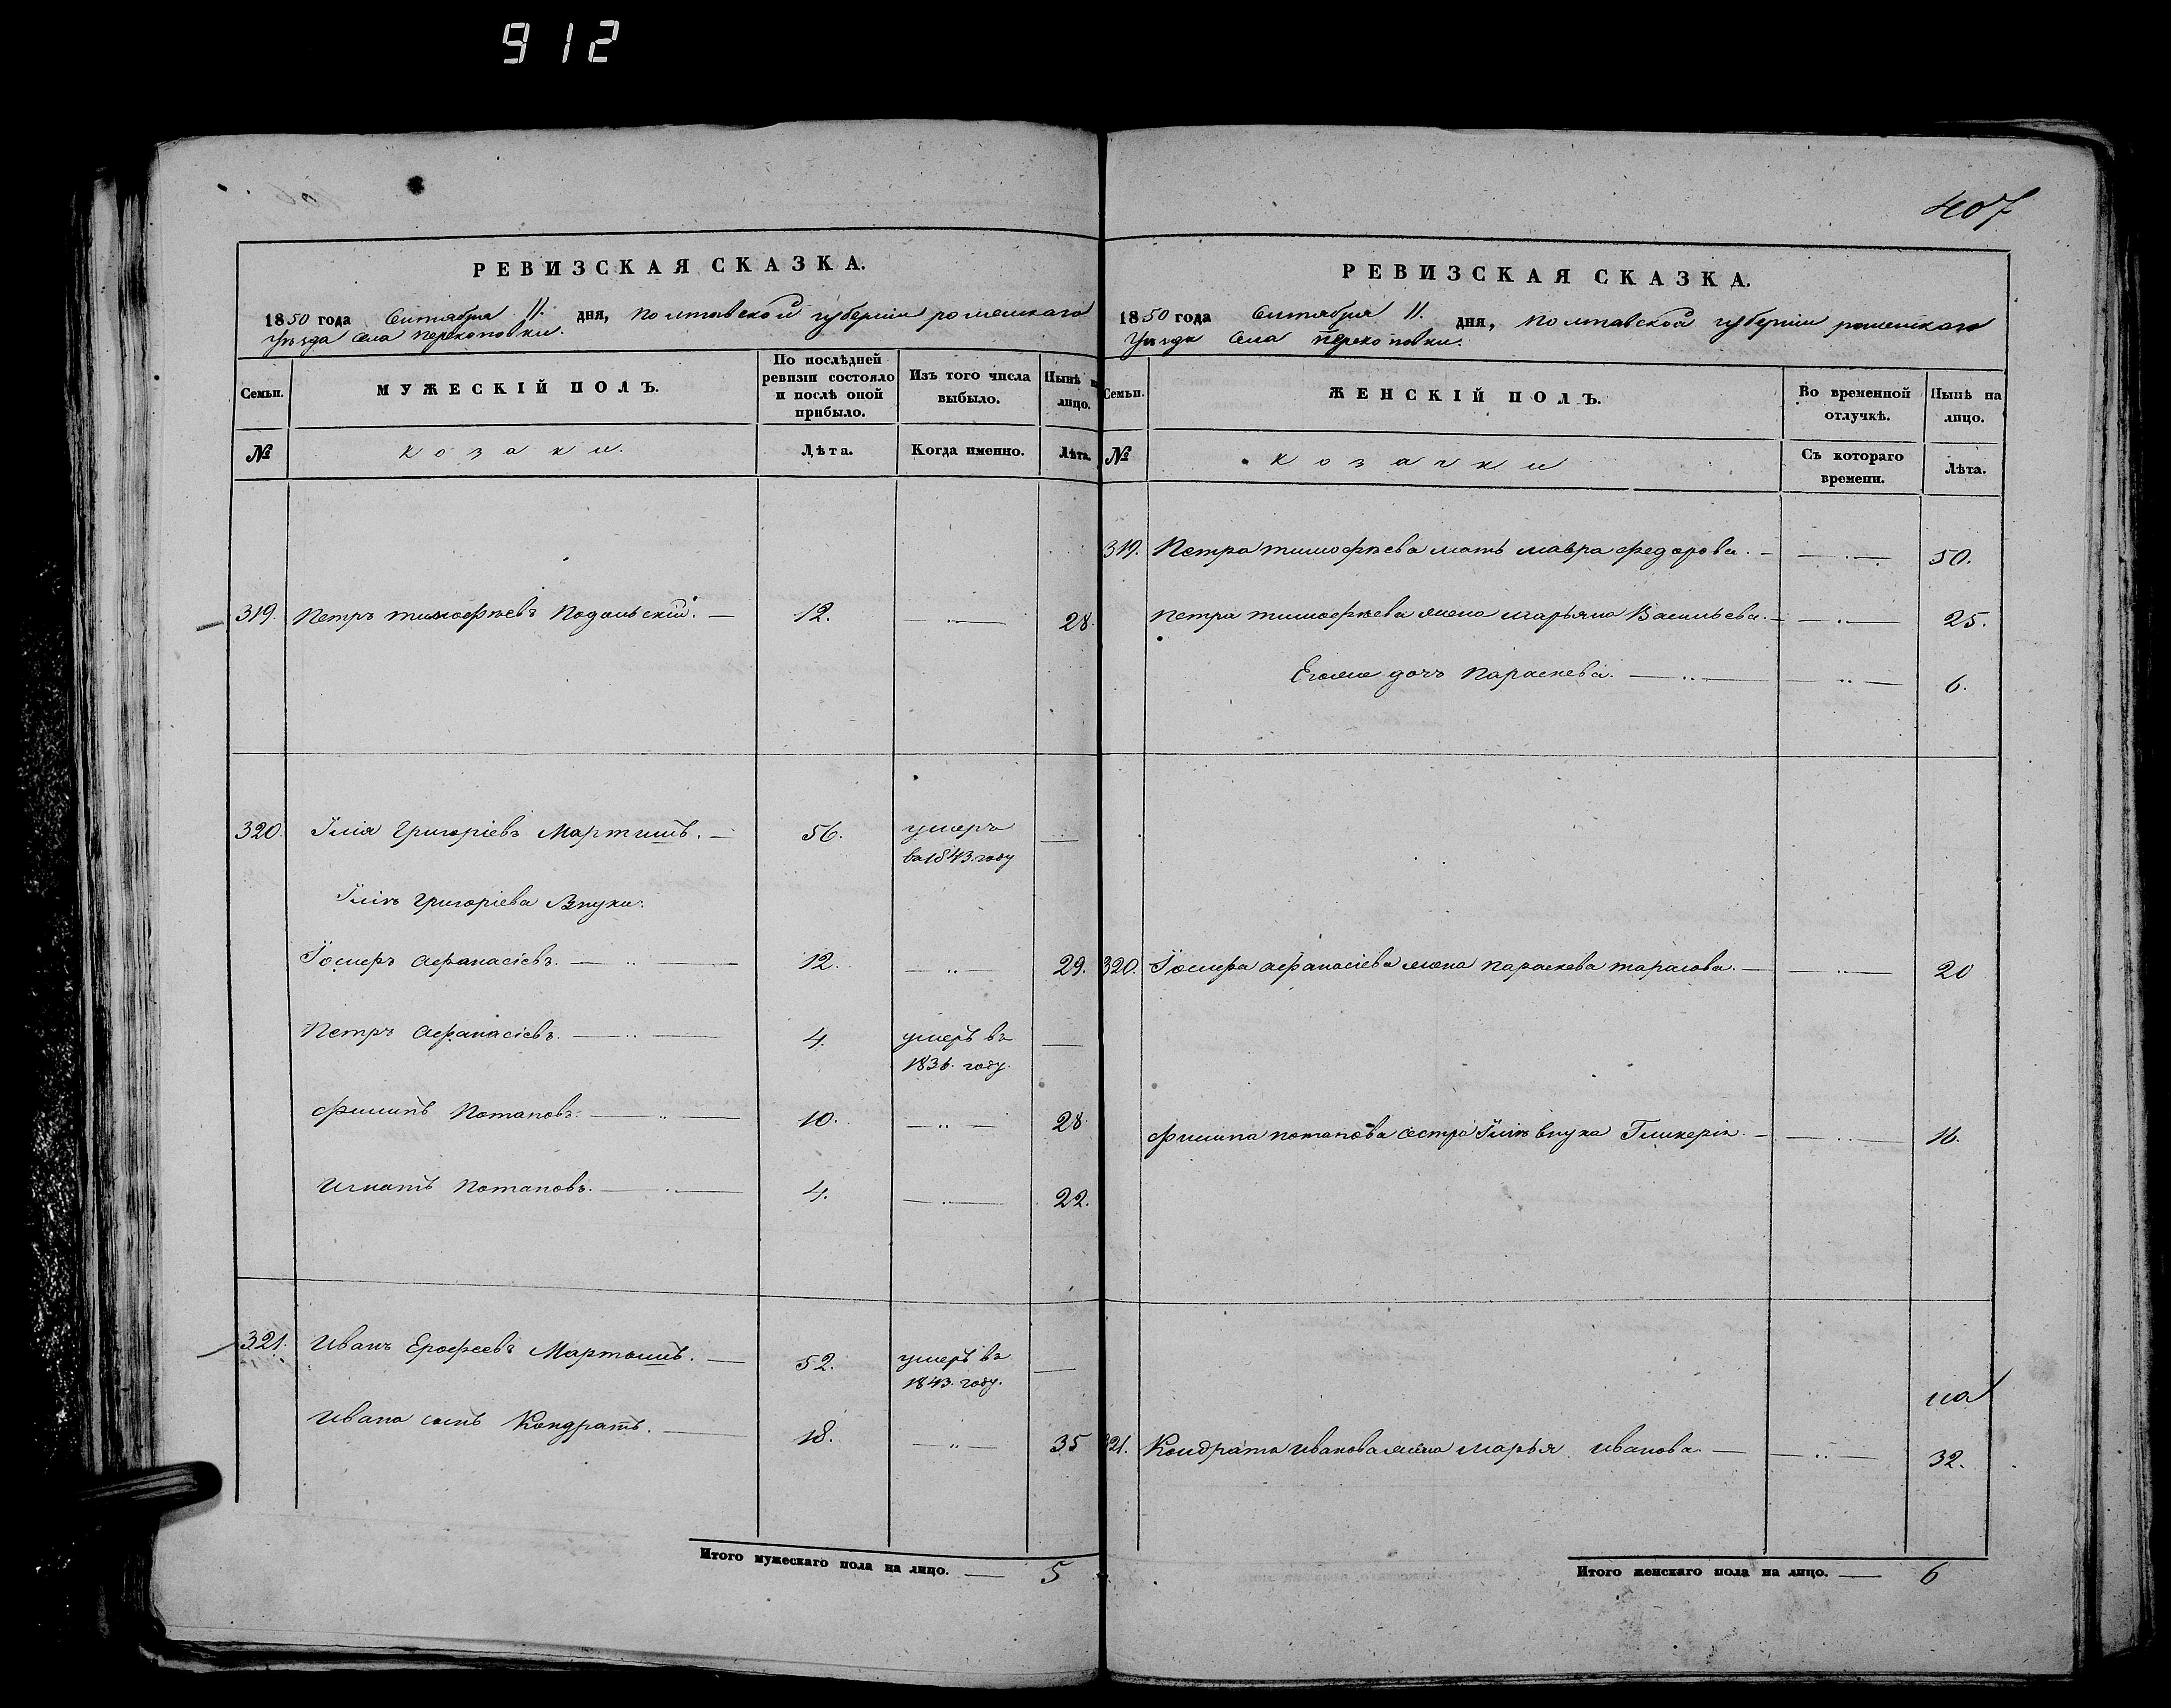 912
407
РЕВИЗСКАЯ СКАЗКА.
1850 года Сентября 11. дня, Полтавской губерніи роменскаго
уѣзда села перекоповки.
Семьи.
МУЖЕСКІЙ ПОЛЪ.
По послѣдней ревизіи состояло и послѣ оной прибыло.
Изъ того числа выбыло.
Нынѣ на лицо.
№
козаки.
Лѣта.
Когда именно.
Лѣта.
319. Петръ тимофѣевъ Подольскій. — 12. — 28.
320. Іллія Григоріевъ Мартишъ. — 56. умеръ —
въ 1843. году
Іллія Григоріева Внуки:
Гомеръ Афанасіевъ. — 12. — 29.
Петръ Афанасіевъ. — 4. умеръ въ —
1836. году.
Филипъ Потаповъ. — 10. — 28.
Игнатъ Потаповъ. — 4. — 22.
321. Иванъ Ерофеевъ Мартышъ. — 52. умеръ въ —
1843. году.
Ивана сынъ Кондратъ. — 18. — 35
Итого мужескаго пола на лицо. — 5
РЕВИЗСКАЯ СКАЗКА.
1850 года Сентября 11. дня, Полтавской губерніи роменскаго
Уѣзда Села перекоповки.
Семьи.
ЖЕНСКІЙ ПОЛЪ.
Во временной отлучкѣ.
Нынѣ на лицо.
№
козачки
Съ котораго времени.
Лѣта.
319. Петра тимофѣева мать мавра федорова. — — 50.
Петра тимофѣева жена марьяна Васильева. — — 25.
Егоже дочь Параскева. — — 6.
320. Гомера афанасіева жена параскева тарасова. — — 20
Филипа потапова сестра Іллія внука Гликерія. — — 16.
на
321. Кондрата иванова жена марья иванова. — — 32.
Итого женскаго пола на лицо. — 6